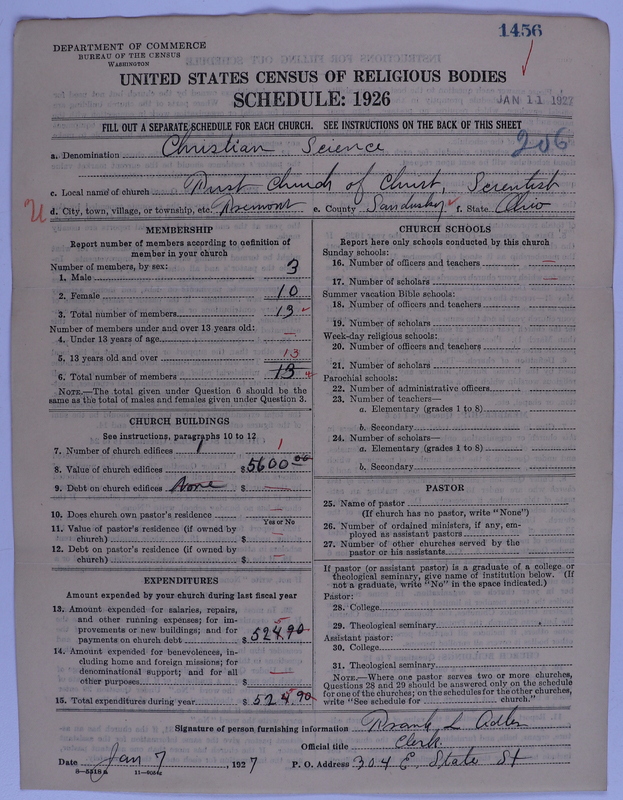 1456
DEPARTMENT OF COMMERCE
BUREAU OF THE CENSUS
WASHINGTON
UNITED STATES CENSUS OF RELIGIOUS BODIES
SCHEDULE: 1926
JAN 11 1927
FILL OUT A SEPARATE SCHEDULE FOR EACH CHURCH. SEE INSTRUCTIONS ON THE BACK OF THIS SHEET
206
a. Denomination Christian Science
c. Local name of church First Church of Christ, Scientist
d. City, town, village, or township, etc. e. County Sandusky f. State Ohio
MEMBERSHIP
Report number of members according to definition of
member in your church
Number of members, by sex:
1. Male 3
2. Female 10
3. Total number of members 13
Number of members under and over 13 years old:
4. Under 13 years of age —
5. 13 years old and over 13
6. Total number of members 13
NOTE.—The total given under Question 6 should be the
same as the total of males and females given under Question 3.
CHURCH BUILDINGS
See instructions, paragraphs 10 to 12
7. Number of church edifices 1 1
8. Value of church edifices $5600.00
9. Debt on church edifices None $ —
10. Does church own pastor's residence —
Yes or No
11. Value of pastor's residence (if owned by
church) $ —
12. Debt on pastor's residence (if owned by
church) $ —
EXPENDITURES
Amount expended by your church during last fiscal year
13. Amount expended for salaries, repairs,
and other running expenses; for im-
provements or new buildings; and for
payments on church debt $ 524.90
5
14. Amount expended for benevolences, in-
cluding home and foreign missions; for
denominational support; and for all
other purposes $ —
15. Total expenditures during year $ 524.90
CHURCH SCHOOLS
Report here only schools conducted by this church
Sunday schools:
16. Number of officers and teachers —
17. Number of scholars —
Summer vacation Bible schools:
18. Number of officers and teachers
19. Number of scholars
Week-day religious schools:
20. Number of officers and teachers
21. Number of scholars
Parochial schools:
22. Number of administrative officers
23. Number of teachers—
a. Elementary (grades 1 to 8)
b. Secondary
24. Number of scholars—
a. Elementary (grades 1 to 8)
b. Secondary
PASTOR
25. Name of pastor
(If church has no pastor, write "None")
26. Number of ordained ministers, if any, em-
ployed as assistant pastors
27. Number of other churches served by the
pastor or his assistants
If pastor (or assistant pastor) is a graduate of a college or
theological seminary, give name of institution below. (If
not a graduate, write "No" in the space indicated.)
Pastor:
28. College
29. Theological seminary
Assistant pastor:
30. College
31. Theological seminary
NOTE.—Where one pastor serves two or more churches,
Questions 28 and 29 should be answered only on the schedule
for one of the churches; on the schedules for the other churches,
write "See schedule for church."
Signature of person furnishing information Frank L Adler
Official title Clerk
Date Jan 7, 1927 P. O. Address 304 E. State St
8—5518a 11—8054c